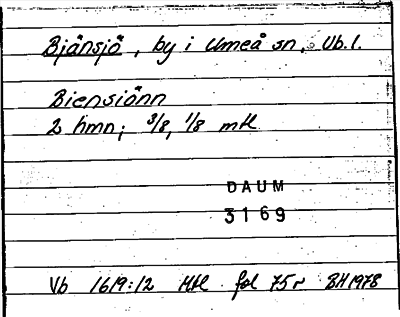 Bjänsjö, by i Umeå sn, Vb.l.
Biensiönn
2 hmn; 3/8, 1/8 mtl
DAUM
3169
Vb 1619:12 Mtl fol 75r BH1978